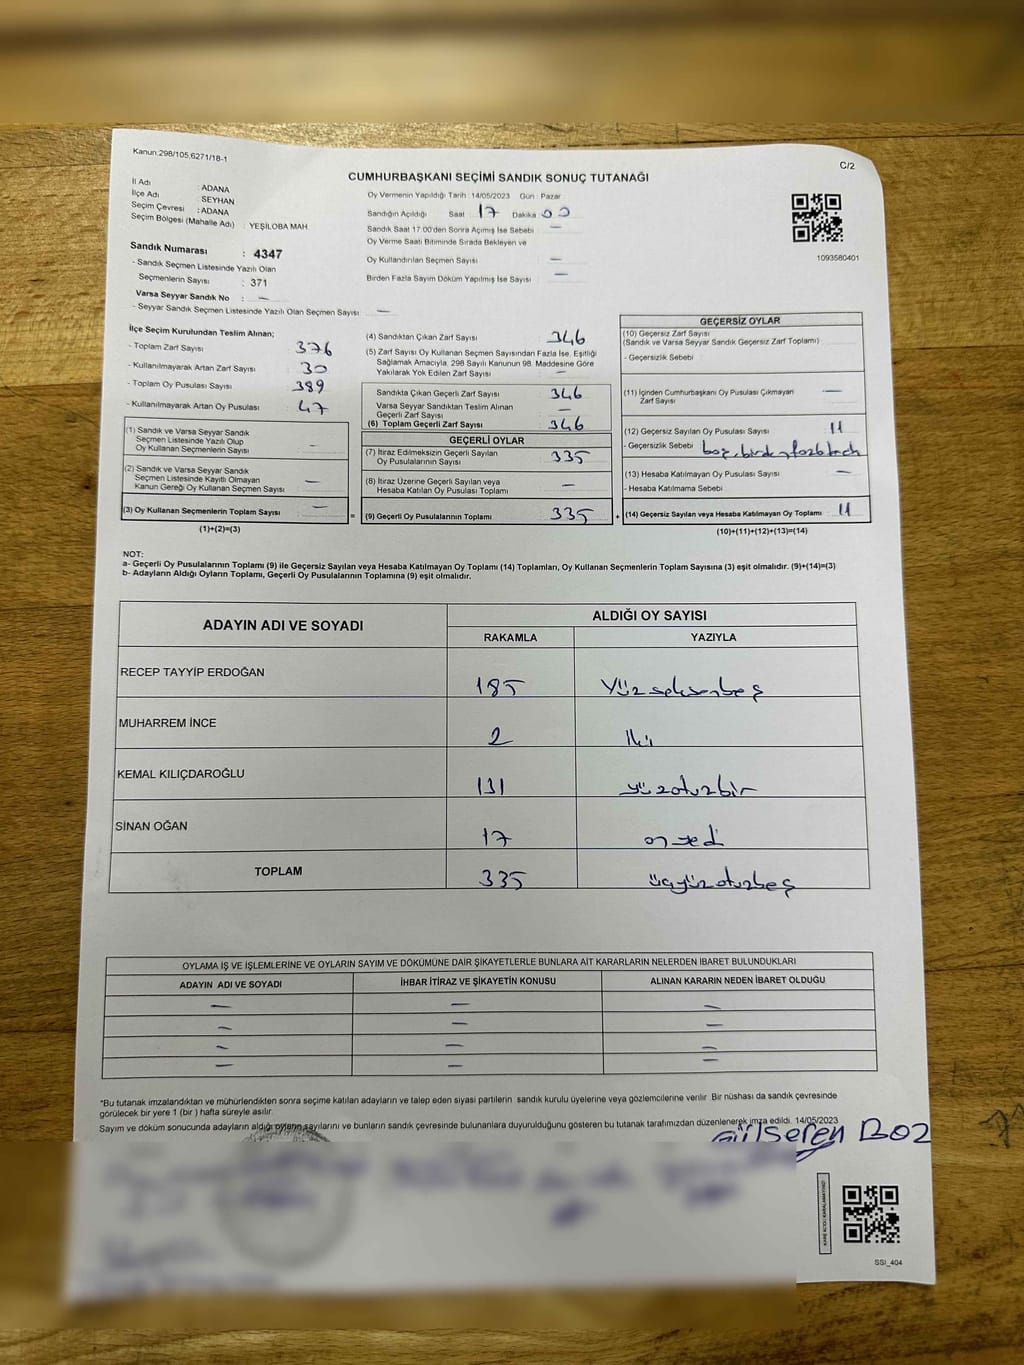 Kanun:298/105,6271/18-1
C/2
CUMHURBAŞKANI SEÇİMİ SANDIK SONUÇ TUTANAĞI
İl Adı : ADANA
İlçe Adı : SEYHAN
Seçim Çevresi : ADANA
Seçim Bölgesi (Mahalle Adı) : YEŞİLOBA MAH
Oy Vermenin Yapıldığı Tarih :14/05/2023 Gün : Pazar
Sandığın Açıldığı Saat 17 Dakika 00
Sandık Saat 17.00'den Sonra Açımış İse Sebebi : —
Oy Verme Saati Bitiminde Sırada Bekleyen ve
Oy Kullandırılan Seçmen Sayısı : —
Birden Fazla Sayım Döküm Yapılmış İse Sayısı : —
1093580401
Sandık Numarası : 4347
- Sandık Seçmen Listesinde Yazılı Olan
Seçmenlerin Sayısı : 371
Varsa Seyyar Sandık No : —
- Seyyar Sandık Seçmen Listesinde Yazılı Olan Seçmen Sayısı : —
İlçe Seçim Kurulundan Teslim Alınan;
- Toplam Zarf Sayısı 376
- Kullanılmayarak Artan Zarf Sayısı 30
- Toplam Oy Pusulası Sayısı 389
- Kullanılmayarak Artan Oy Pusulası 47
(1) Sandık ve Varsa Seyyar Sandık
Seçmen Listesinde Yazılı Olup
Oy Kullanan Seçmenlerin Sayısı —
(2) Sandık ve Varsa Seyyar Sandık
Seçmen Listesinde Kayıtlı Olmayan
Kanun Gereği Oy Kullanan Seçmen Sayısı —
(3) Oy Kullanan Seçmenlerin Toplam Sayısı —
(1)+(2)=(3)
=
(4) Sandıktan Çıkan Zarf Sayısı 346
(5) Zarf Sayısı Oy Kullanan Seçmen Sayısından Fazla İse, Eşitliği
Sağlamak Amacıyla, 298 Sayılı Kanunun 98. Maddesine Göre
Yakılarak Yok Edilen Zarf Sayısı —
Sandıkta Çıkan Geçerli Zarf Sayısı 346
Varsa Seyyar Sandıktan Teslim Alınan
Geçerli Zarf Sayısı —
(6) Toplam Geçerli Zarf Sayısı 346
GEÇERLİ OYLAR
(7) İtiraz Edilmeksizin Geçerli Sayılan
Oy Pusulalarının Sayısı 335
(8) İtiraz Üzerine Geçerli Sayılan veya
Hesaba Katılan Oy Pusulası Toplamı —
(9) Geçerli Oy Pusulalarının Toplamı 335
+
GEÇERSİZ OYLAR
(10) Geçersiz Zarf Sayısı
(Sandık ve Varsa Seyyar Sandık Geçersiz Zarf Toplamı)
- Geçersizlik Sebebi :
(11) İçinden Cumhurbaşkanı Oy Pusulası Çıkmayan
Zarf Sayısı —
(12) Geçersiz Sayılan Oy Pusulası Sayısı 11
- Geçersizlik Sebebi :
(13) Hesaba Katılmayan Oy Pusulası Sayısı —
- Hesaba Katılmama Sebebi
(14) Geçersiz Sayılan veya Hesaba Katılmayan Oy Toplamı 11
(10)+(11)+(12)+(13)=(14)
NOT:
a- Geçerli Oy Pusulalarının Toplamı (9) ile Geçersiz Sayılan veya Hesaba Katılmayan Oy Toplamı (14) Toplamları, Oy Kullanan Seçmenlerin Toplam Sayısına (3) eşit olmalıdır. (9)+(14)=(3)
b- Adayların Aldığı Oyların Toplamı, Geçerli Oy Pusulalarının Toplamına (9) eşit olmalıdır.
ADAYIN ADI VE SOYADI ALDIĞI OY SAYISI
RAKAMLA YAZIYLA
RECEP TAYYİP ERDOĞAN 185 Yüzseksenbeş
MUHARREM İNCE 2 İki
KEMAL KILIÇDAROĞLU 131 yüzotuzbir
SİNAN OĞAN 17 onyedi
TOPLAM 335 üçyüzotuzbeş
OYLAMA İŞ VE İŞLEMLERİNE VE OYLARIN SAYIM VE DÖKÜMÜNE DAİR ŞİKAYETLERLE BUNLARA AİT KARARLARIN NELERDEN İBARET BULUNDUKLARI
ADAYIN ADI VE SOYADI İHBAR İTİRAZ VE ŞİKAYETİN KONUSU ALINAN KARARIN NEDEN İBARET OLDUĞU
— — —
— — —
— — —
— — —
*Bu tutanak imzalandıktan ve mühürlendikten sonra seçime katılan adayların ve talep eden siyasi partilerin sandık kurulu üyelerine veya gözlemcilerine verilir. Bir nüshası da sandık çevresinde
görülecek bir yere 1 (bir ) hafta süreyle asılır.
Sayım ve döküm sonucunda adayların aldığı oyların sayılarını ve bunların sandık çevresinde bulunanlara duyurulduğunu gösteren bu tutanak tarafımızdan düzenlenerek imza edildi. 14/05/2023
Gülseren BOZ
SSI_404